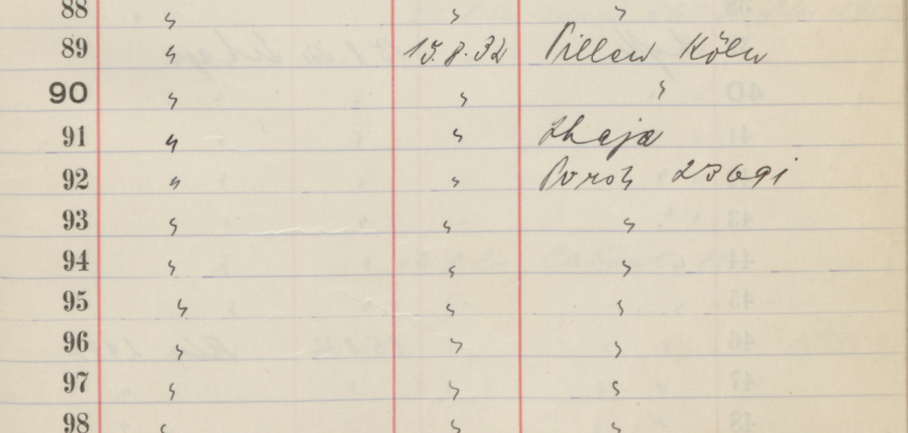 88 " " "
89 " 15.8.32 Villen Köln
90 " " "
91 " " Thaja
92 " " Poroh 23691
93 " " "
94 " " "
95 " " "
96 " " "
97 " " "
98 " " "